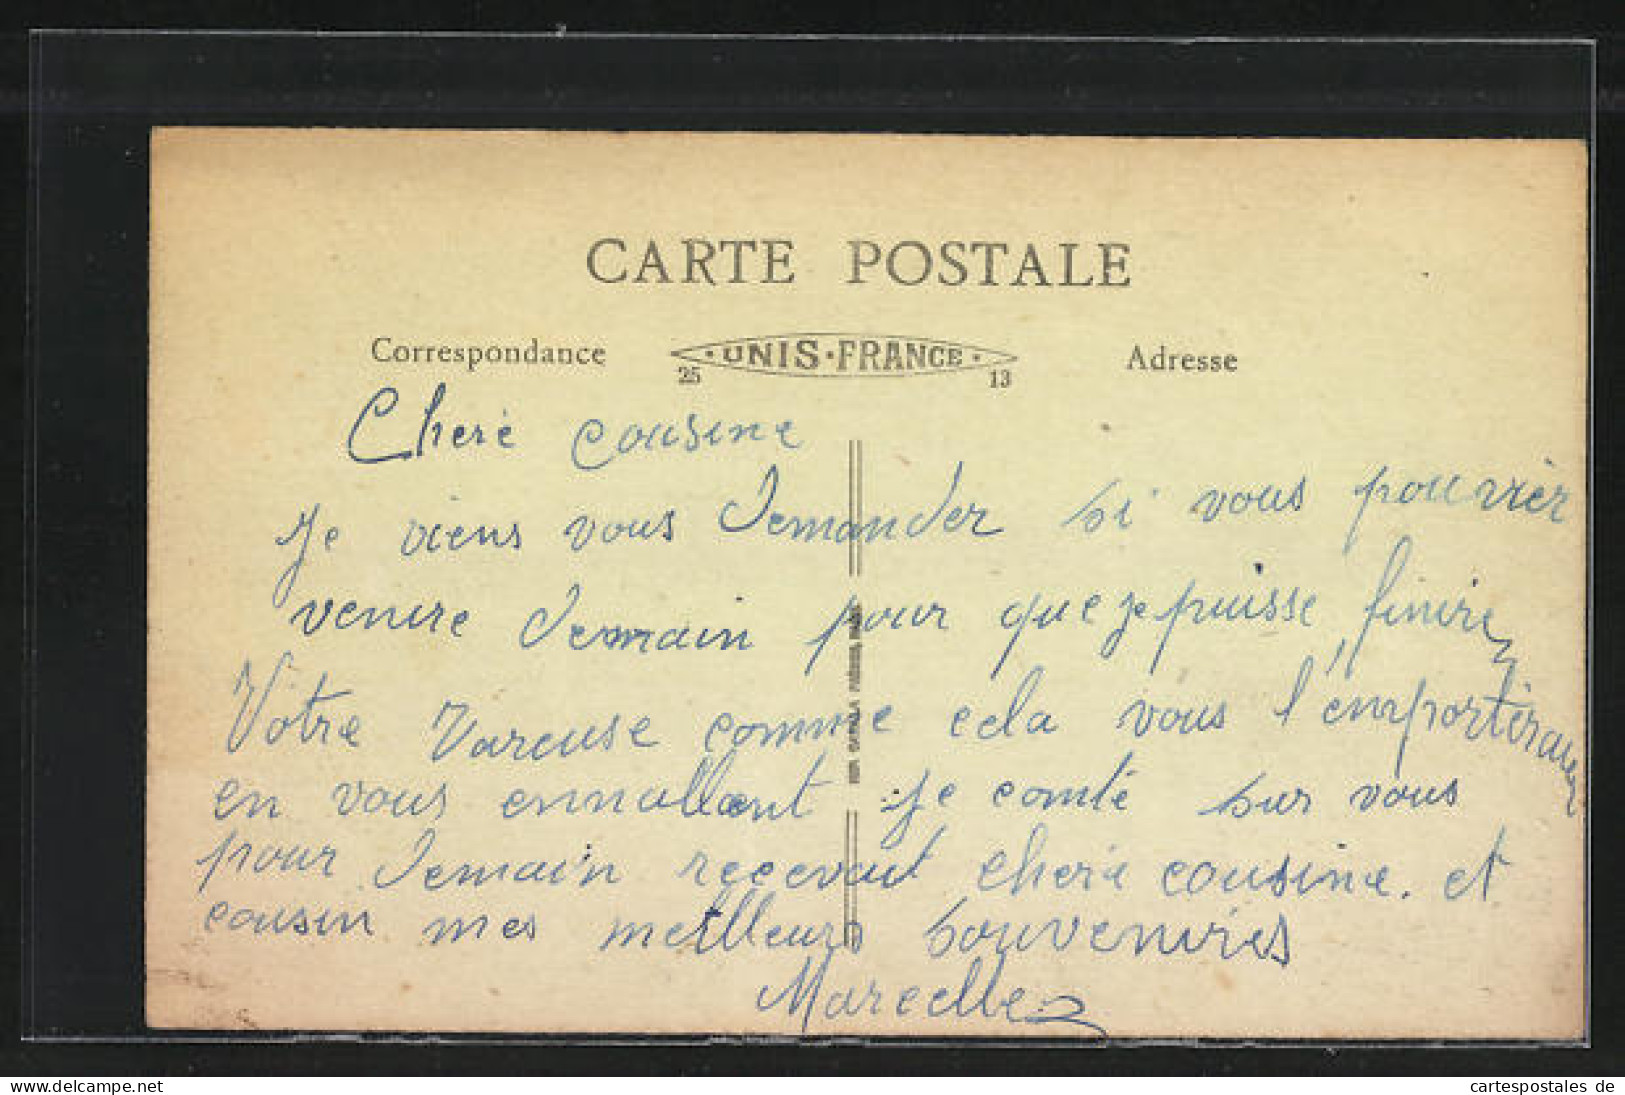 CARTE POSTALE
Correspondance
·UNIS·FRANCE·
25 13
Adresse
Cheré cousine
Je viens vous demander si vous pouvrièr
venire demain pour que je puisse finire
Votre Vareuse comme cela vous l'emporterai
en vous ennallant je comté sur vous
pour demain recevant cheré cousine. et
cousin mes meilleurs souvenires
Marcelle
delcampe.net
cartespostales de